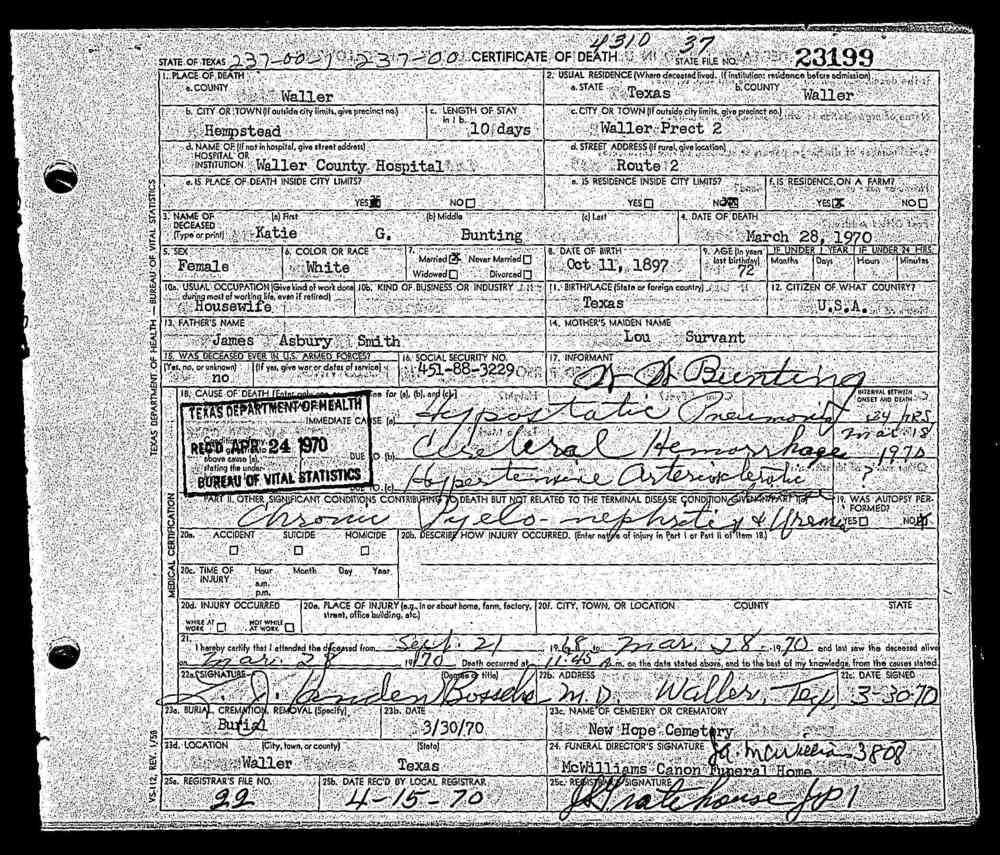 4310 37
STATE OF TEXAS 237-00-1 237-00 CERTIFICATE OF DEATH STATE FILE NO. 23199
1. PLACE OF DEATH 2. USUAL RESIDENCE (Where deceased lived. If institution: residence before admission)
a. COUNTY Waller a. STATE Texas b. COUNTY Waller
b. CITY OR TOWN (If outside city limits, give precinct no.) c. LENGTH OF STAY in 1 b. c. CITY OR TOWN (If outside city limits, give precinct no.)
Hempstead 10 days Waller Prect 2
d. NAME OF (If not in hospital, give street address) HOSPITAL OR INSTITUTION Waller County Hospital d. STREET ADDRESS (If rural, give location) Route 2
e. IS PLACE OF DEATH INSIDE CITY LIMITS? e. IS RESIDENCE INSIDE CITY LIMITS? f. IS RESIDENCE ON A FARM?
YES NO YES NO YES X NO
3. NAME OF DECEASED (Type or print) (a) First (b) Middle (c) Last 4. DATE OF DEATH
Katie G. Bunting March 28, 1970
5. SEX 6. COLOR OR RACE 7. Married X Never Married 8. DATE OF BIRTH 9. AGE (In years last birthday) IF UNDER 1 YEAR IF UNDER 24 HRS.
Female White Widowed Divorced Oct 11, 1897 72 Months Days Hours Minutes
10a. USUAL OCCUPATION (Give kind of work done during most of working life, even if retired) 10b. KIND OF BUSINESS OR INDUSTRY 11. BIRTHPLACE (State or foreign country) 12. CITIZEN OF WHAT COUNTRY?
Housewife Texas U.S.A.
13. FATHER'S NAME 14. MOTHER'S MAIDEN NAME
James Asbury Smith Lou Survant
15. WAS DECEASED EVER IN U.S. ARMED FORCES? 16. SOCIAL SECURITY NO. 17. INFORMANT
(Yes, no, or unknown) (If yes, give war or dates of service) 451-88-3229 Bunting
no
18. CAUSE OF DEATH for (a), (b), and (c) INTERVAL BETWEEN ONSET AND DEATH
TEXAS DEPARTMENT OF HEALTH
IMMEDIATE CAUSE (a) Hypostatic Pneumonia 24 HRS
REC'D APR 24 1970
above cause (a), stating the under- DUE TO (b) Cerebral Hemorrhage Mar 18 1970
BUREAU OF VITAL STATISTICS
DUE TO (c) Hypertensive Arteriosclerotic ?
PART II. OTHER SIGNIFICANT CONDITIONS CONTRIBUTING TO DEATH BUT NOT RELATED TO THE TERMINAL DISEASE CONDITION GIVEN IN PART I(a) 19. WAS AUTOPSY PERFORMED?
Chronic Pyelo-nephritis & Uremia YES NO X
20a. ACCIDENT SUICIDE HOMICIDE 20b. DESCRIBE HOW INJURY OCCURRED. (Enter nature of injury in Part I or Part II of item 18.)
20c. TIME OF INJURY Hour Month Day Year
a.m.
p.m.
20d. INJURY OCCURRED 20e. PLACE OF INJURY (e.g., in or about home, farm, factory, street, office building, etc.) 20f. CITY, TOWN, OR LOCATION COUNTY STATE
WHILE AT WORK NOT WHILE AT WORK
21. I hereby certify that I attended the deceased from Sept. 21 1968 to Mar. 28 1970 and last saw the deceased alive
on Mar. 28 1970 Death occurred at 11:45 A.m. on the date stated above, and to the best of my knowledge, from the causes stated.
22a. SIGNATURE (Degree or title) 22b. ADDRESS 22c. DATE SIGNED
M.D. Waller, Tex. 3-30-70
23a. BURIAL, CREMATION, REMOVAL (Specify) 23b. DATE 23c. NAME OF CEMETERY OR CREMATORY
Burial 3/30/70 New Hope Cemetery
23d. LOCATION (City, town, or county) (State) 24. FUNERAL DIRECTOR'S SIGNATURE McWilliams 3808
Waller Texas McWilliams Canon Funeral Home
25a. REGISTRAR'S FILE NO. 25b. DATE REC'D BY LOCAL REGISTRAR 25c. REGISTRAR'S SIGNATURE
22 4-15-70
TEXAS DEPARTMENT OF HEALTH — BUREAU OF VITAL STATISTICS
MEDICAL CERTIFICATION
VS-112, REV. 1/58